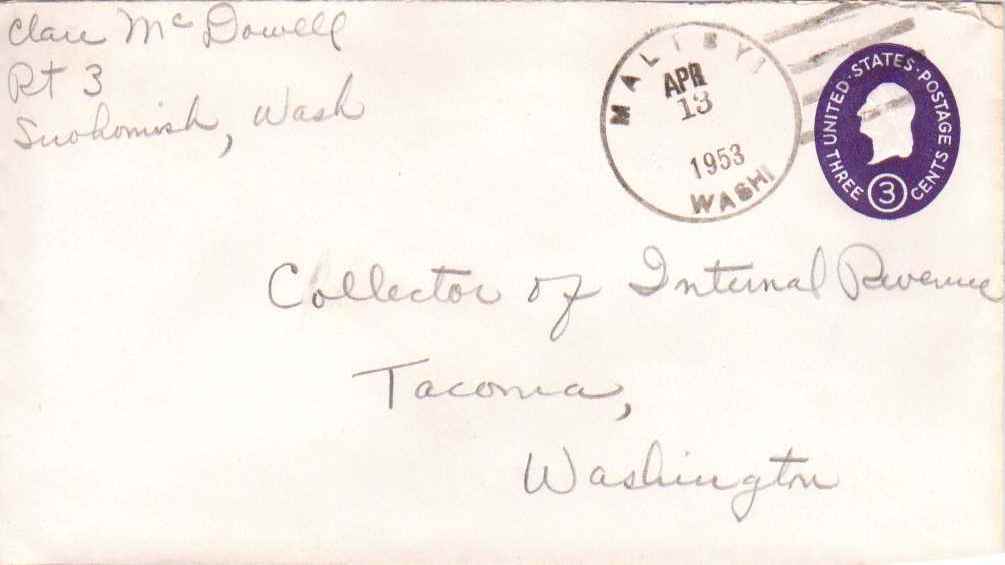 Clare McDowell
Rt 3
Snohomish, Wash
MALTBY
APR
13
1953
WASH
UNITED·STATES·POSTAGE
THREE 3 CENTS
Collector of Internal Revenue
Tacoma,
Washington